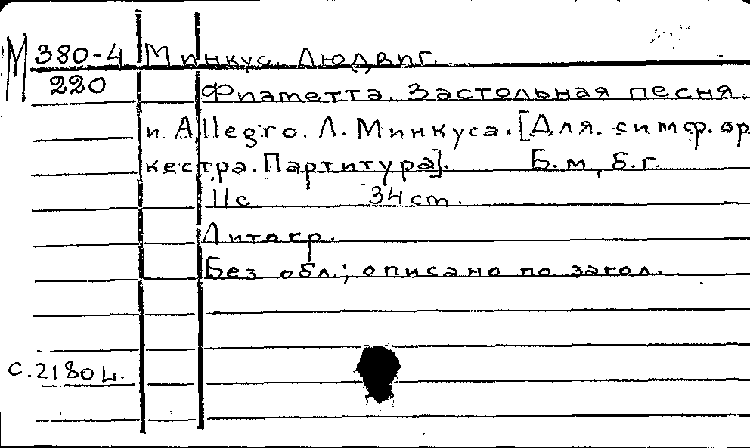 М 380-4 Минкус, Людвиг.
220 Фиаметта. Застольная песня.
и Allegro. Л. Минкуса. [Для симф. ор
кестра. Партитура]. Б.м, б.г.
11с 34 cm.
Литогр.
Без обл.; описано по загол.
с.2180ц.